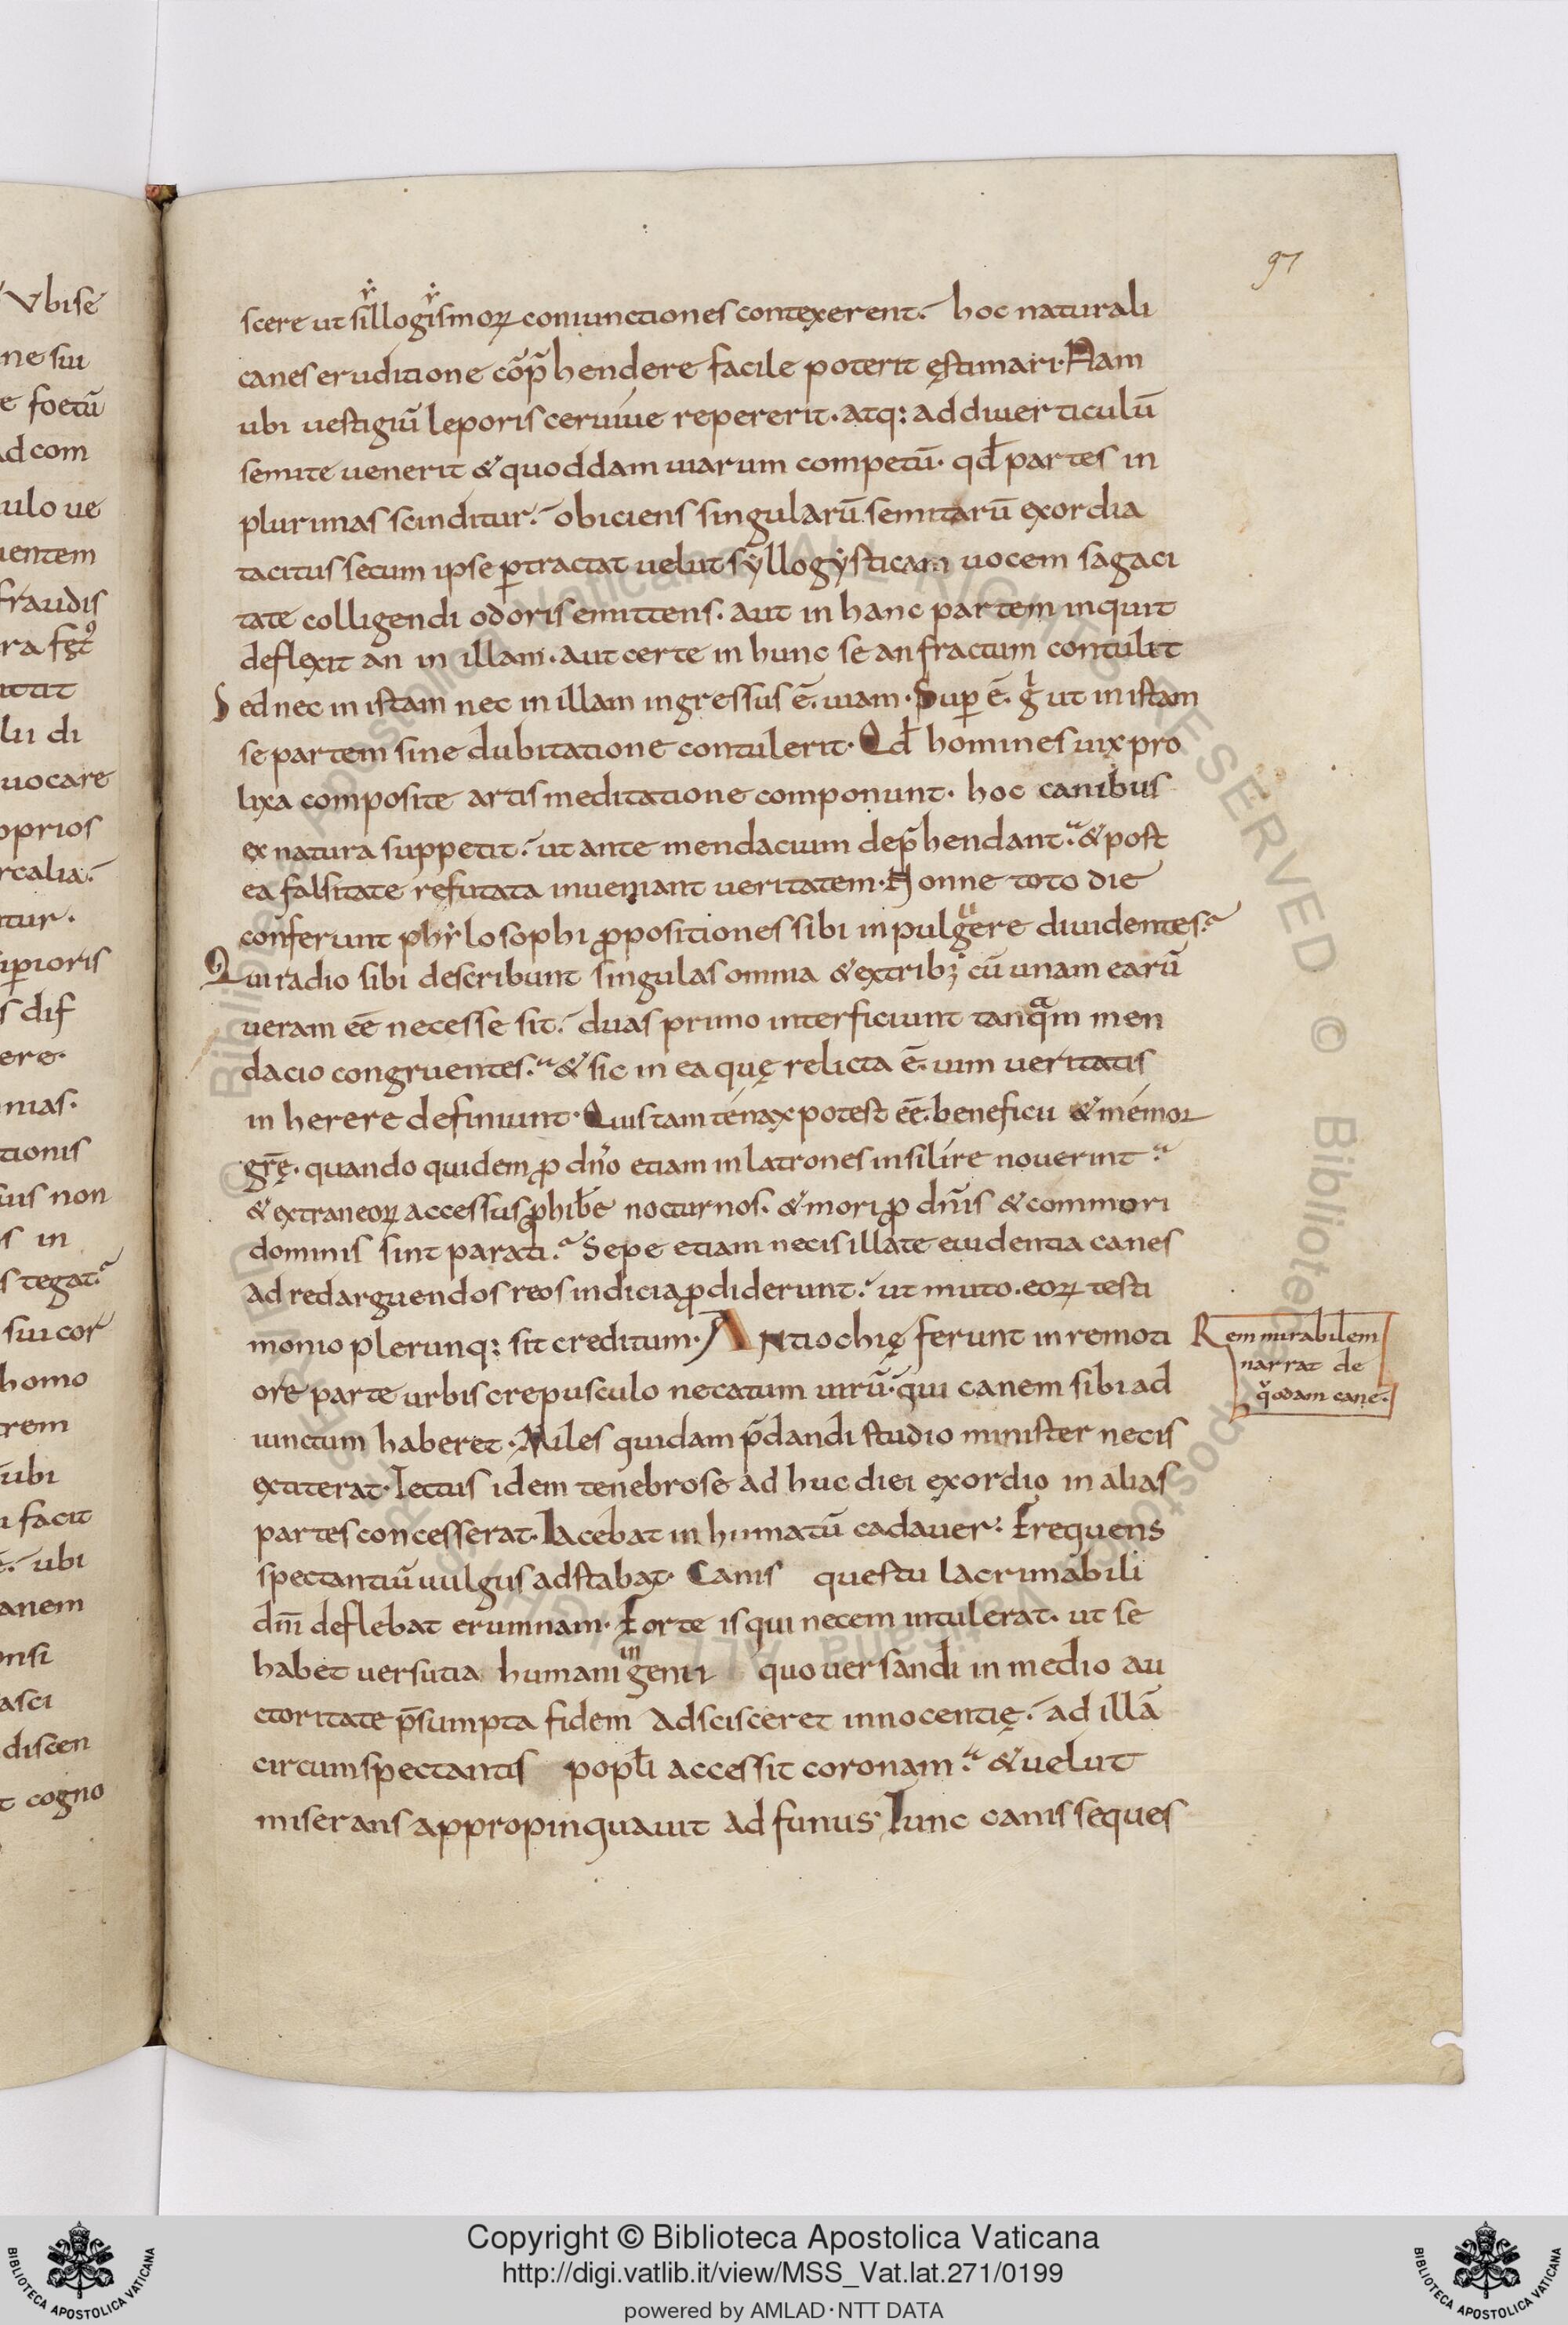 97
scere ut sẏllogẏsmoꝝ coniunctiones contexerent. hoc naturali
canes eruditione cōp̄hendere facile poterit ęstimari. Nam
ubi uestigiū leporis ceruiue repererit. atq: ad diuerticulū
semite uenerit & quoddam uiarum competū. qđ partes in
plurimas scinditur. obiciens singularū semitarū exordia
tacitus secum ipse ꝑtractat uelut sẏllogẏsticam uocem sagaci
tate colligendi odoris emittens. aut in hanc partem inquit
deflexit an in illam. aut certe in hunc se anfractum contulit
Sed nec in istam nec in illam ingressus ē. uiam. Suꝑ ē. g̃ ut in istam
se partem sine dubitatione contulerit. Qđ homines uix pro
lixa composite artis meditatione componunt. hoc canibus
ex natura suppetit. ut ante mendacium dep̄hendant. & post
ea falsitate refutata inueniant ueritatem. Nonne toto die
conferunt phẏlosophi ꝓpositiones sibi in pulguere diuidentes.
Qui radio sibi describunt singulas omnia & ex tribꝫ cū unam earū
ueram eē necesse sit. duas primo interficiunt tanqᵃm men
dacio congruentes. & sic in ea quę relicta ē. uim ueritatis
in herere definiunt. Quis tam tenax potest eē. beneficii & memor
gr̄ę. quando quidem ꝓ dn̄o etiam in latrones insilire nouerint
& extraneoꝝ accessus ꝓhib̄e nocturnos. & mori ꝓ dn̄is & commori
dominis sint parati. Sepe etiam necis illate euidentia canes
ad redarguendos reos indicia ꝓdiderunt. ut muto. eoꝝ testi
monio plerunq: sit creditum. Antiochię ferunt in remoti
ore parte urbis crepusculo necatum uirū. qui canem sibi ad
iunctum haberet. Miles quidam p̄dandi studio minister necis
extiterat. Tectus idem tenebrose ad huc diei exordio in alias
partes concesserat. Iacebat in humatū cadauer. Frequens
spectantiū uulgus adstabat. Canis questu lacrimabili
dn̄i deflebat erumnam. Forte is qui necem intulerat. ut se
habet uersutia humani ingenii quo uersandi in medio au
ctoritate p̄sumpta fidem adscisceret innocentię. ad illā
circumspectantis popl̄i accessit coronam. & uelut
miserans appropinquauit ad funus. Tunc canis seques
Rem mirabilem
narrat de
qᵒdam cane.
Vbi se
ne sui
e foetū
ad com
ulo ue
uentem
fraudis
lii di
uocare
oprios
rcalia.
tur.
ꝑioris
s dif
ere.
mas.
tionis
uis non
s in
s tegat.
sui cor
homo
rem
ubi
facit
ē. ubi
anem
nsi
asci
discen
t cogno
Copyright © Biblioteca Apostolica Vaticana
http://digi.vatlib.it/view/MSS_Vat.lat.271/0199
powered by AMLAD·NTT DATA
BIBLIOTECA APOSTOLICA VATICANA
BIBLIOTECA APOSTOLICA VATICANA